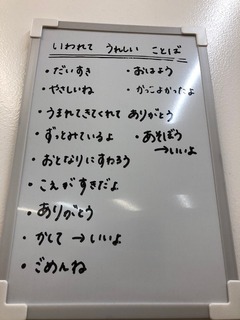 いわれて うれしい ことば
・だいすき ・おはよう
・やさしいね ・かっこよかったよ
・うまれてきてくれて ありがとう
・ずっとみているよ ・あそぼう
→いいよ
・おとなりにすわろう
・こえがすきだよ
・ありがとう
・かして →いいよ
・ごめんね